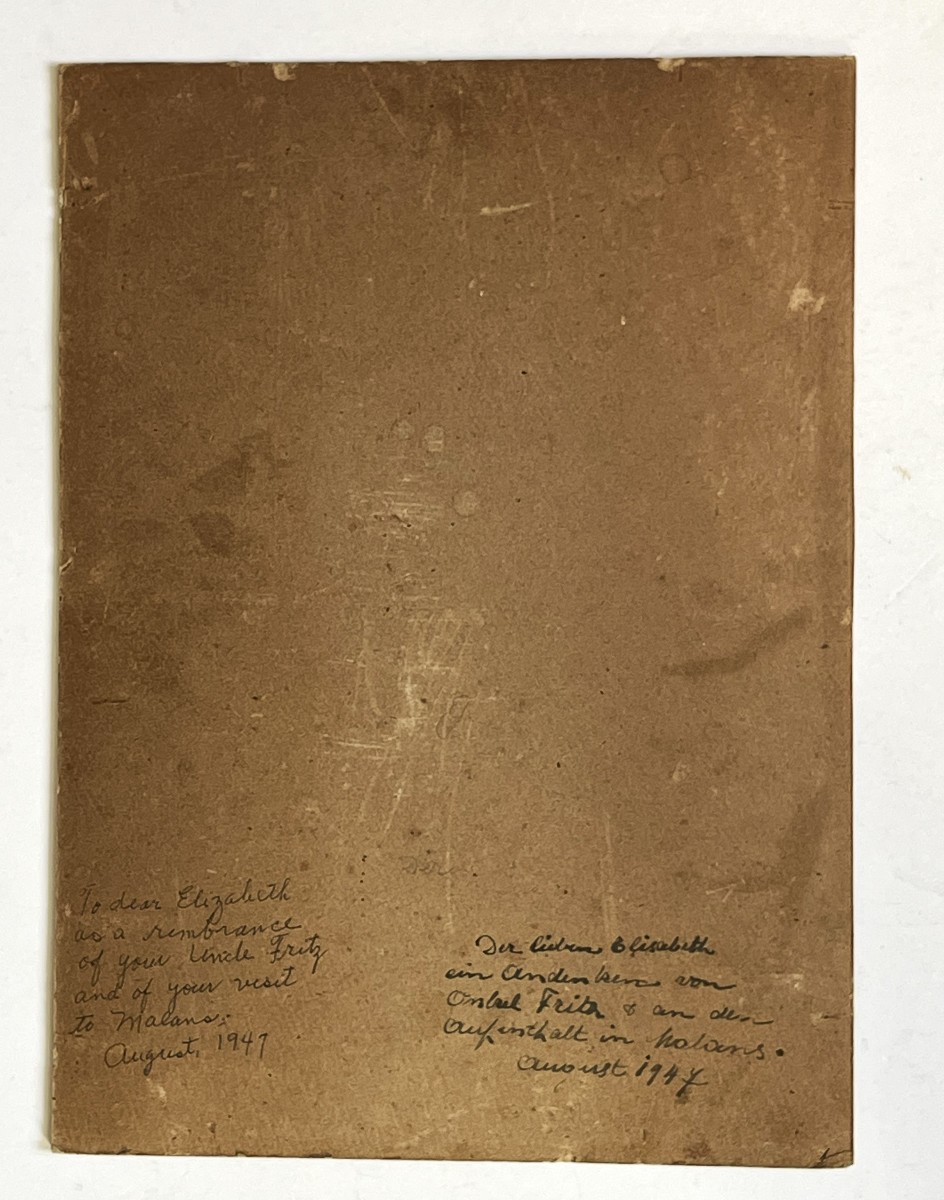 To dear Elizabeth
as a rembrance
of your Uncle Fritz
and of your visit
to Malans.
August, 1947
Der lieben Elisabeth
ein Andenken von
Onkel Fritz & an den
Aufenthalt in Malans.
August 1947